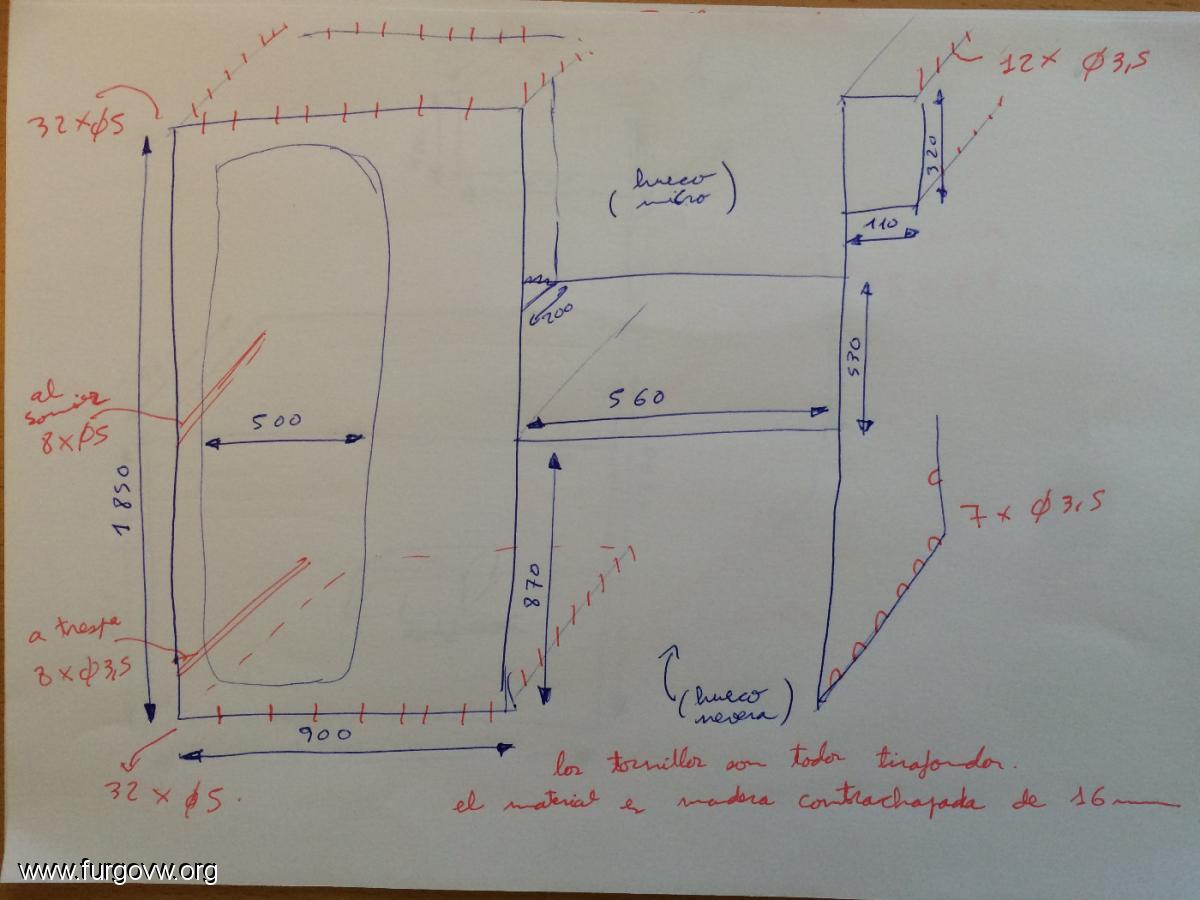 32 x φ5
12 x φ3,5
(hueco
micro)
320
110
200
530
560
al
somier
8 x φ5
500
1850
870
7 x φ3,5
a trespa
8 x φ3,5
(hueco
nevera)
900
32 x φ5.
los tornillos son todos tirafondos.
el material es madera contrachapada de 16mm
www.furgovw.org